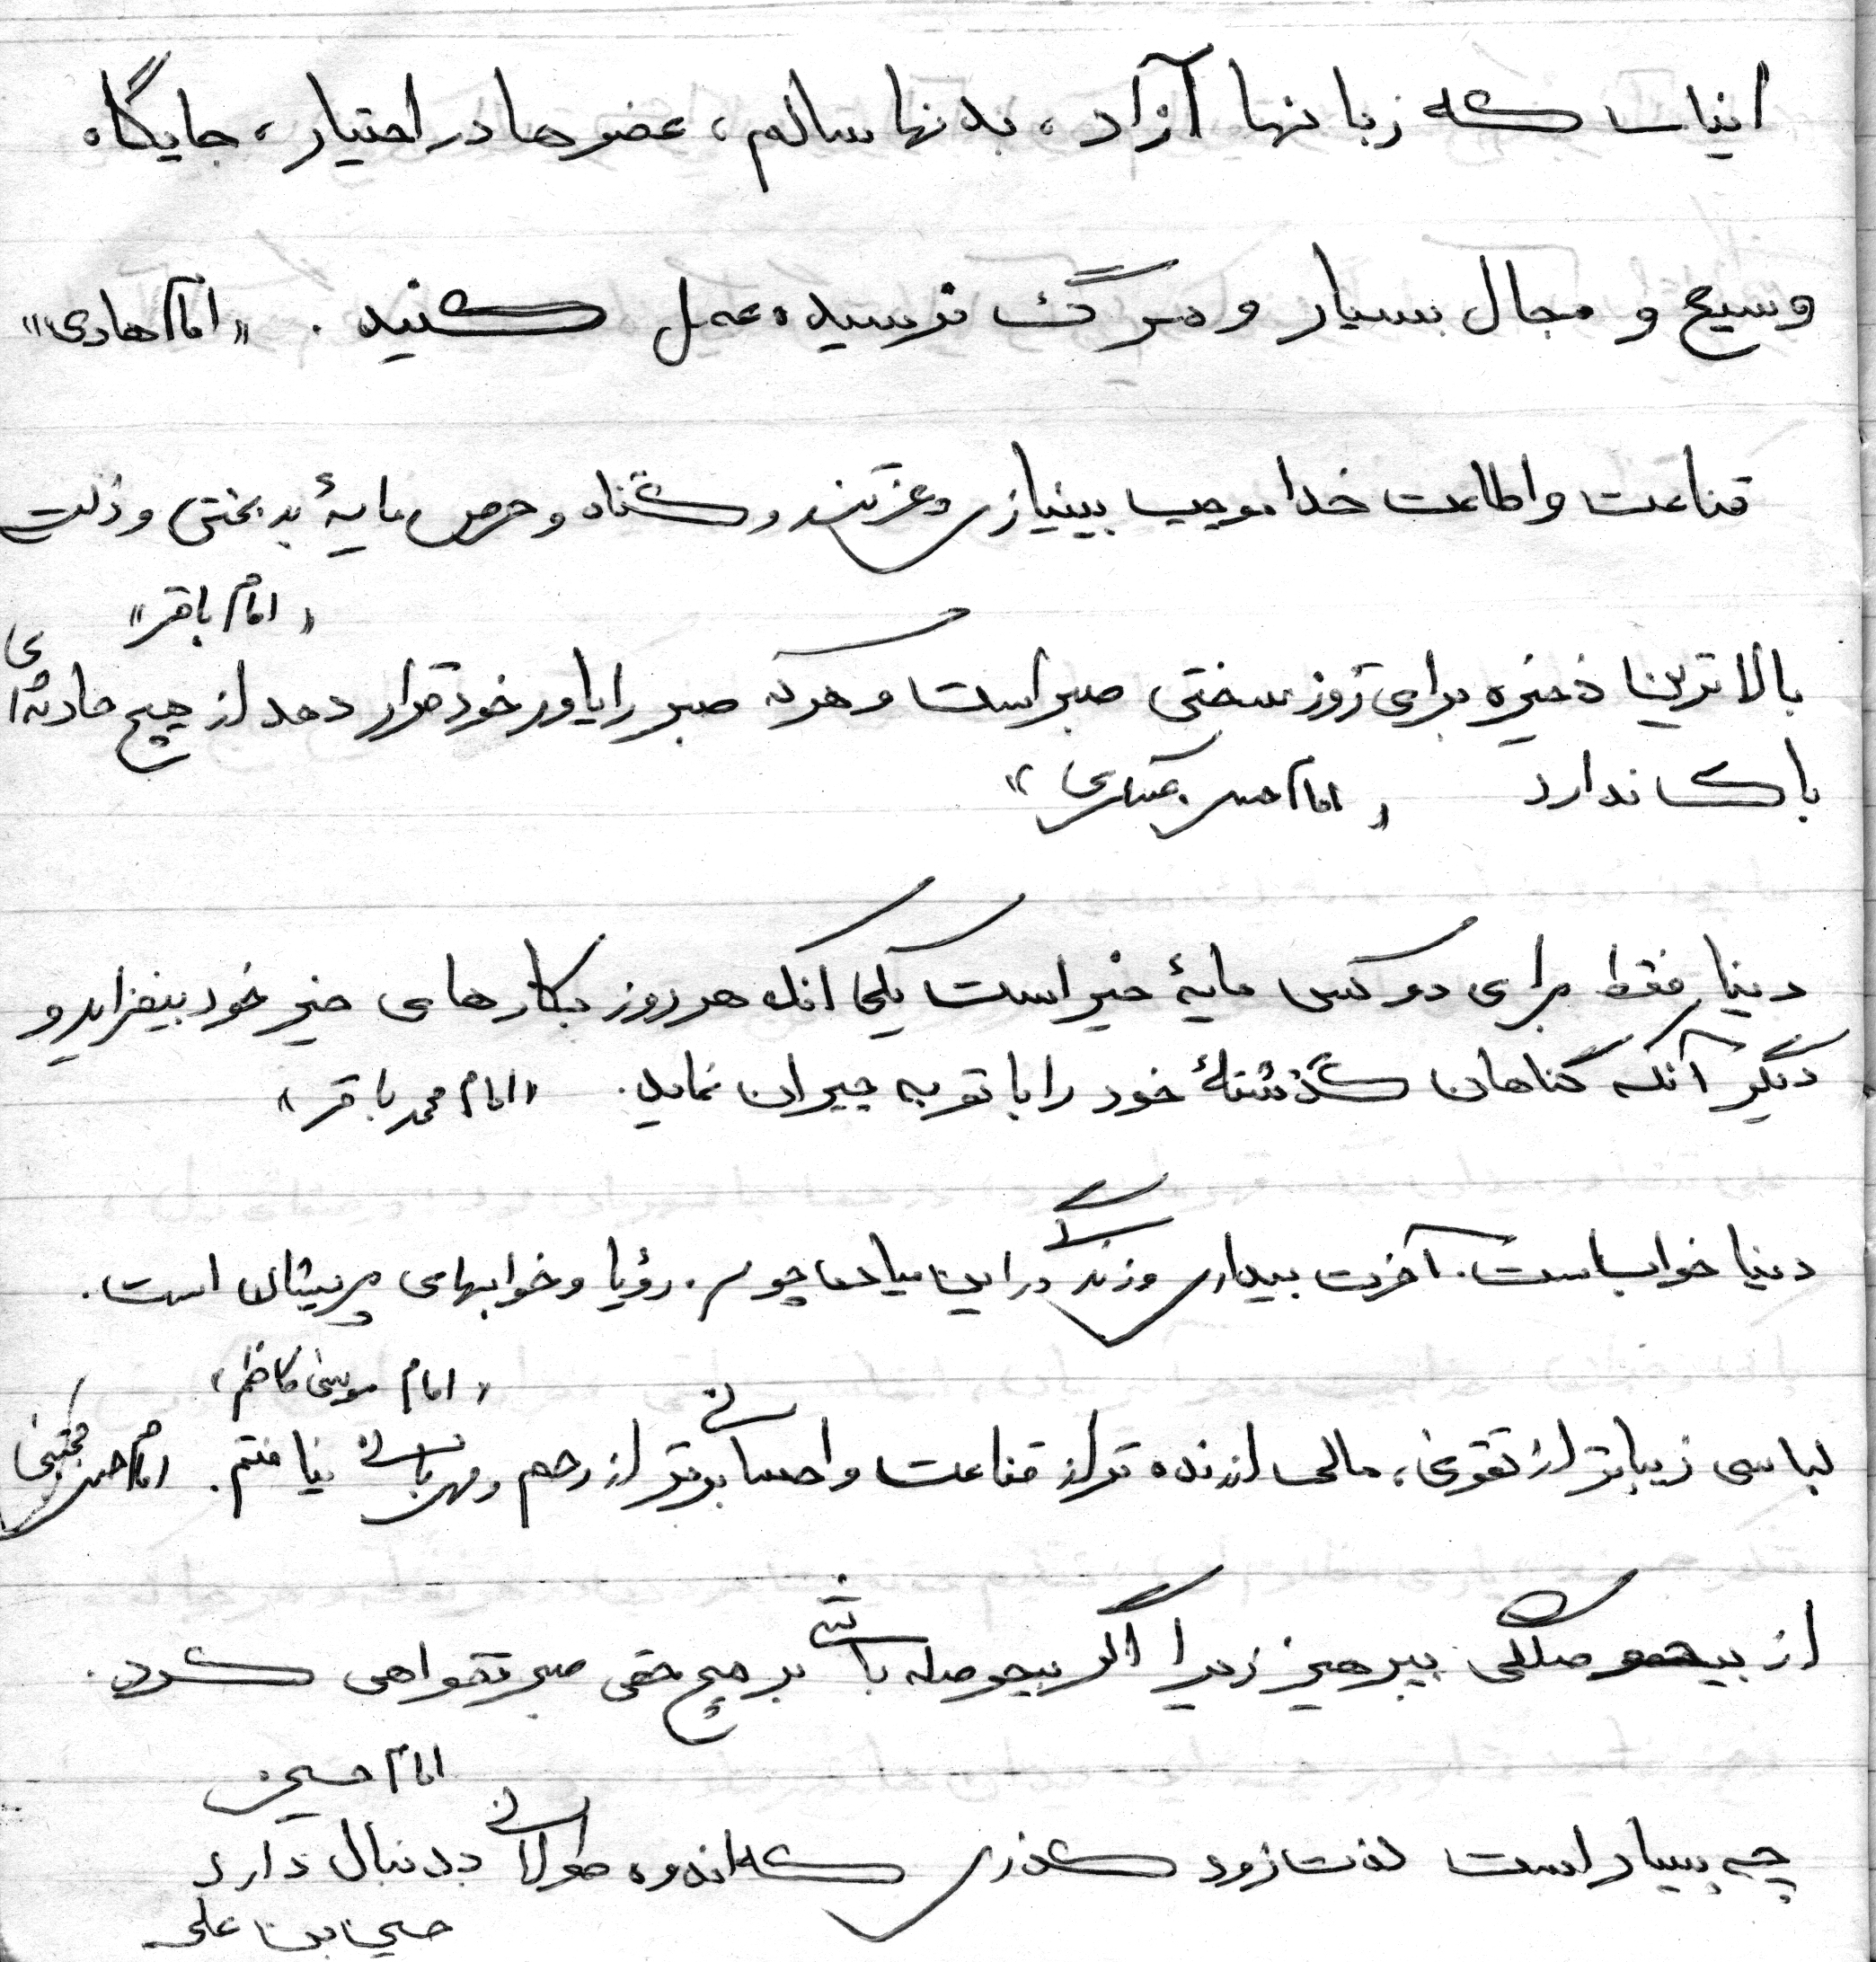 اینک که زبانها آزاد، بدنها سالم، عضوها در اختیار، جایگاه
وسیع و مجال بسیار و مرگ نرسیده عمل کنید. «امام هادی»
قناعت و اطاعت خدا موجب بینیازی و عزتند و گناه و حرص مایهٔ بدبختی و ذلت
«امام باقر»
بالاترین ذخیره برای روز سختی صبر است و هرکه صبر را یاور خود قرار دهد از هیچ حادثه‌ای
باک ندارد «امام حسن عسکری»
دنیا فقط برای دو کس مایهٔ خیر است یکی انکه هر روز بکارهای خیر خود بیفزاید و
دیگر آنکه گناهان گذشتهٔ خود را با توبه جبران نماید. «امام محمد باقر»
دنیا خواب است. آخرت بیداری و زندگی در این میان چو رؤیا و خوابهای پریشان است.
«امام موسی کاظم»
لباسی زیباتر از تقوی، مالی ارزنده تر از قناعت و احسانی برتر از رحم و مهربانی نیافتم. امام حسن مجتبی
از بیحوصلگی بپرهیز زیرا اگر بیحوصله باشی بر هیچ حقی صبر نخواهی کرد.
امام حسین
چه بسیار است لذت زود گذری که اندوه طولانی بدنبال دارد
حسین بن علی